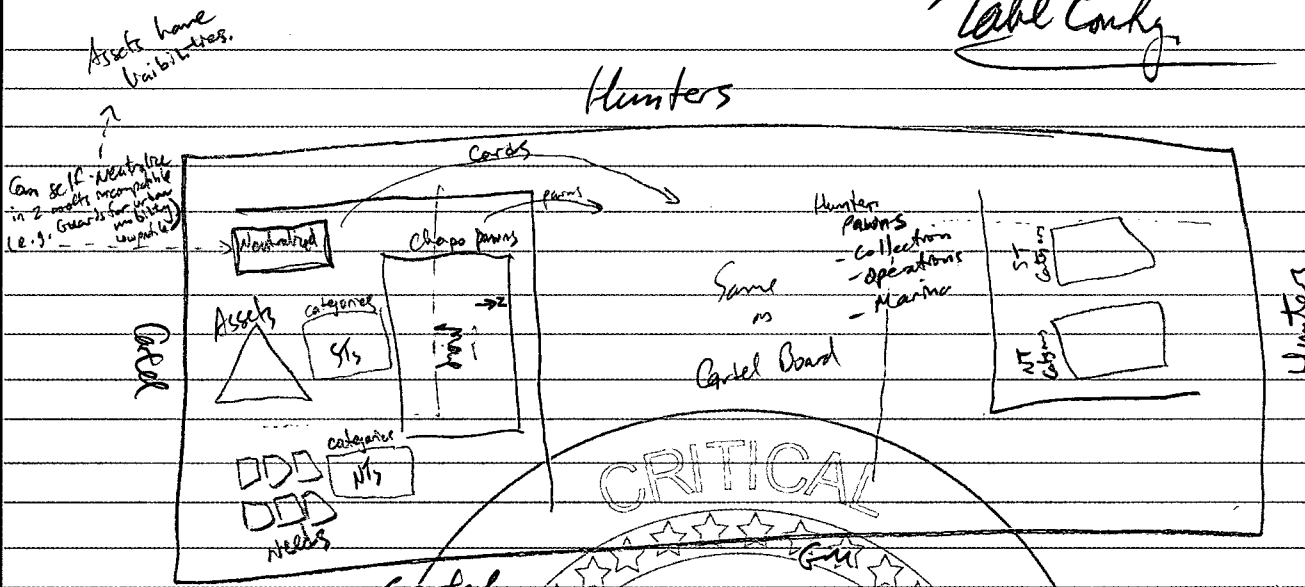 Table Config.
Assets have
liabilities.
Hunters
Cards
pawns
Can self-neutralize
in 2 meets incompatible
(e.g. Guards for urban
mobility
Neutralized
Chapo pawns
Hunter
Pawns
- Collection
- Operations
- Marina
Same
as
Cartel Board
ST
Category
NT
Category
Hunters
Cartel
Assets
categories
STs
Map
→2
categories
NTs
Needs
CRITICAL
GM
Cartel